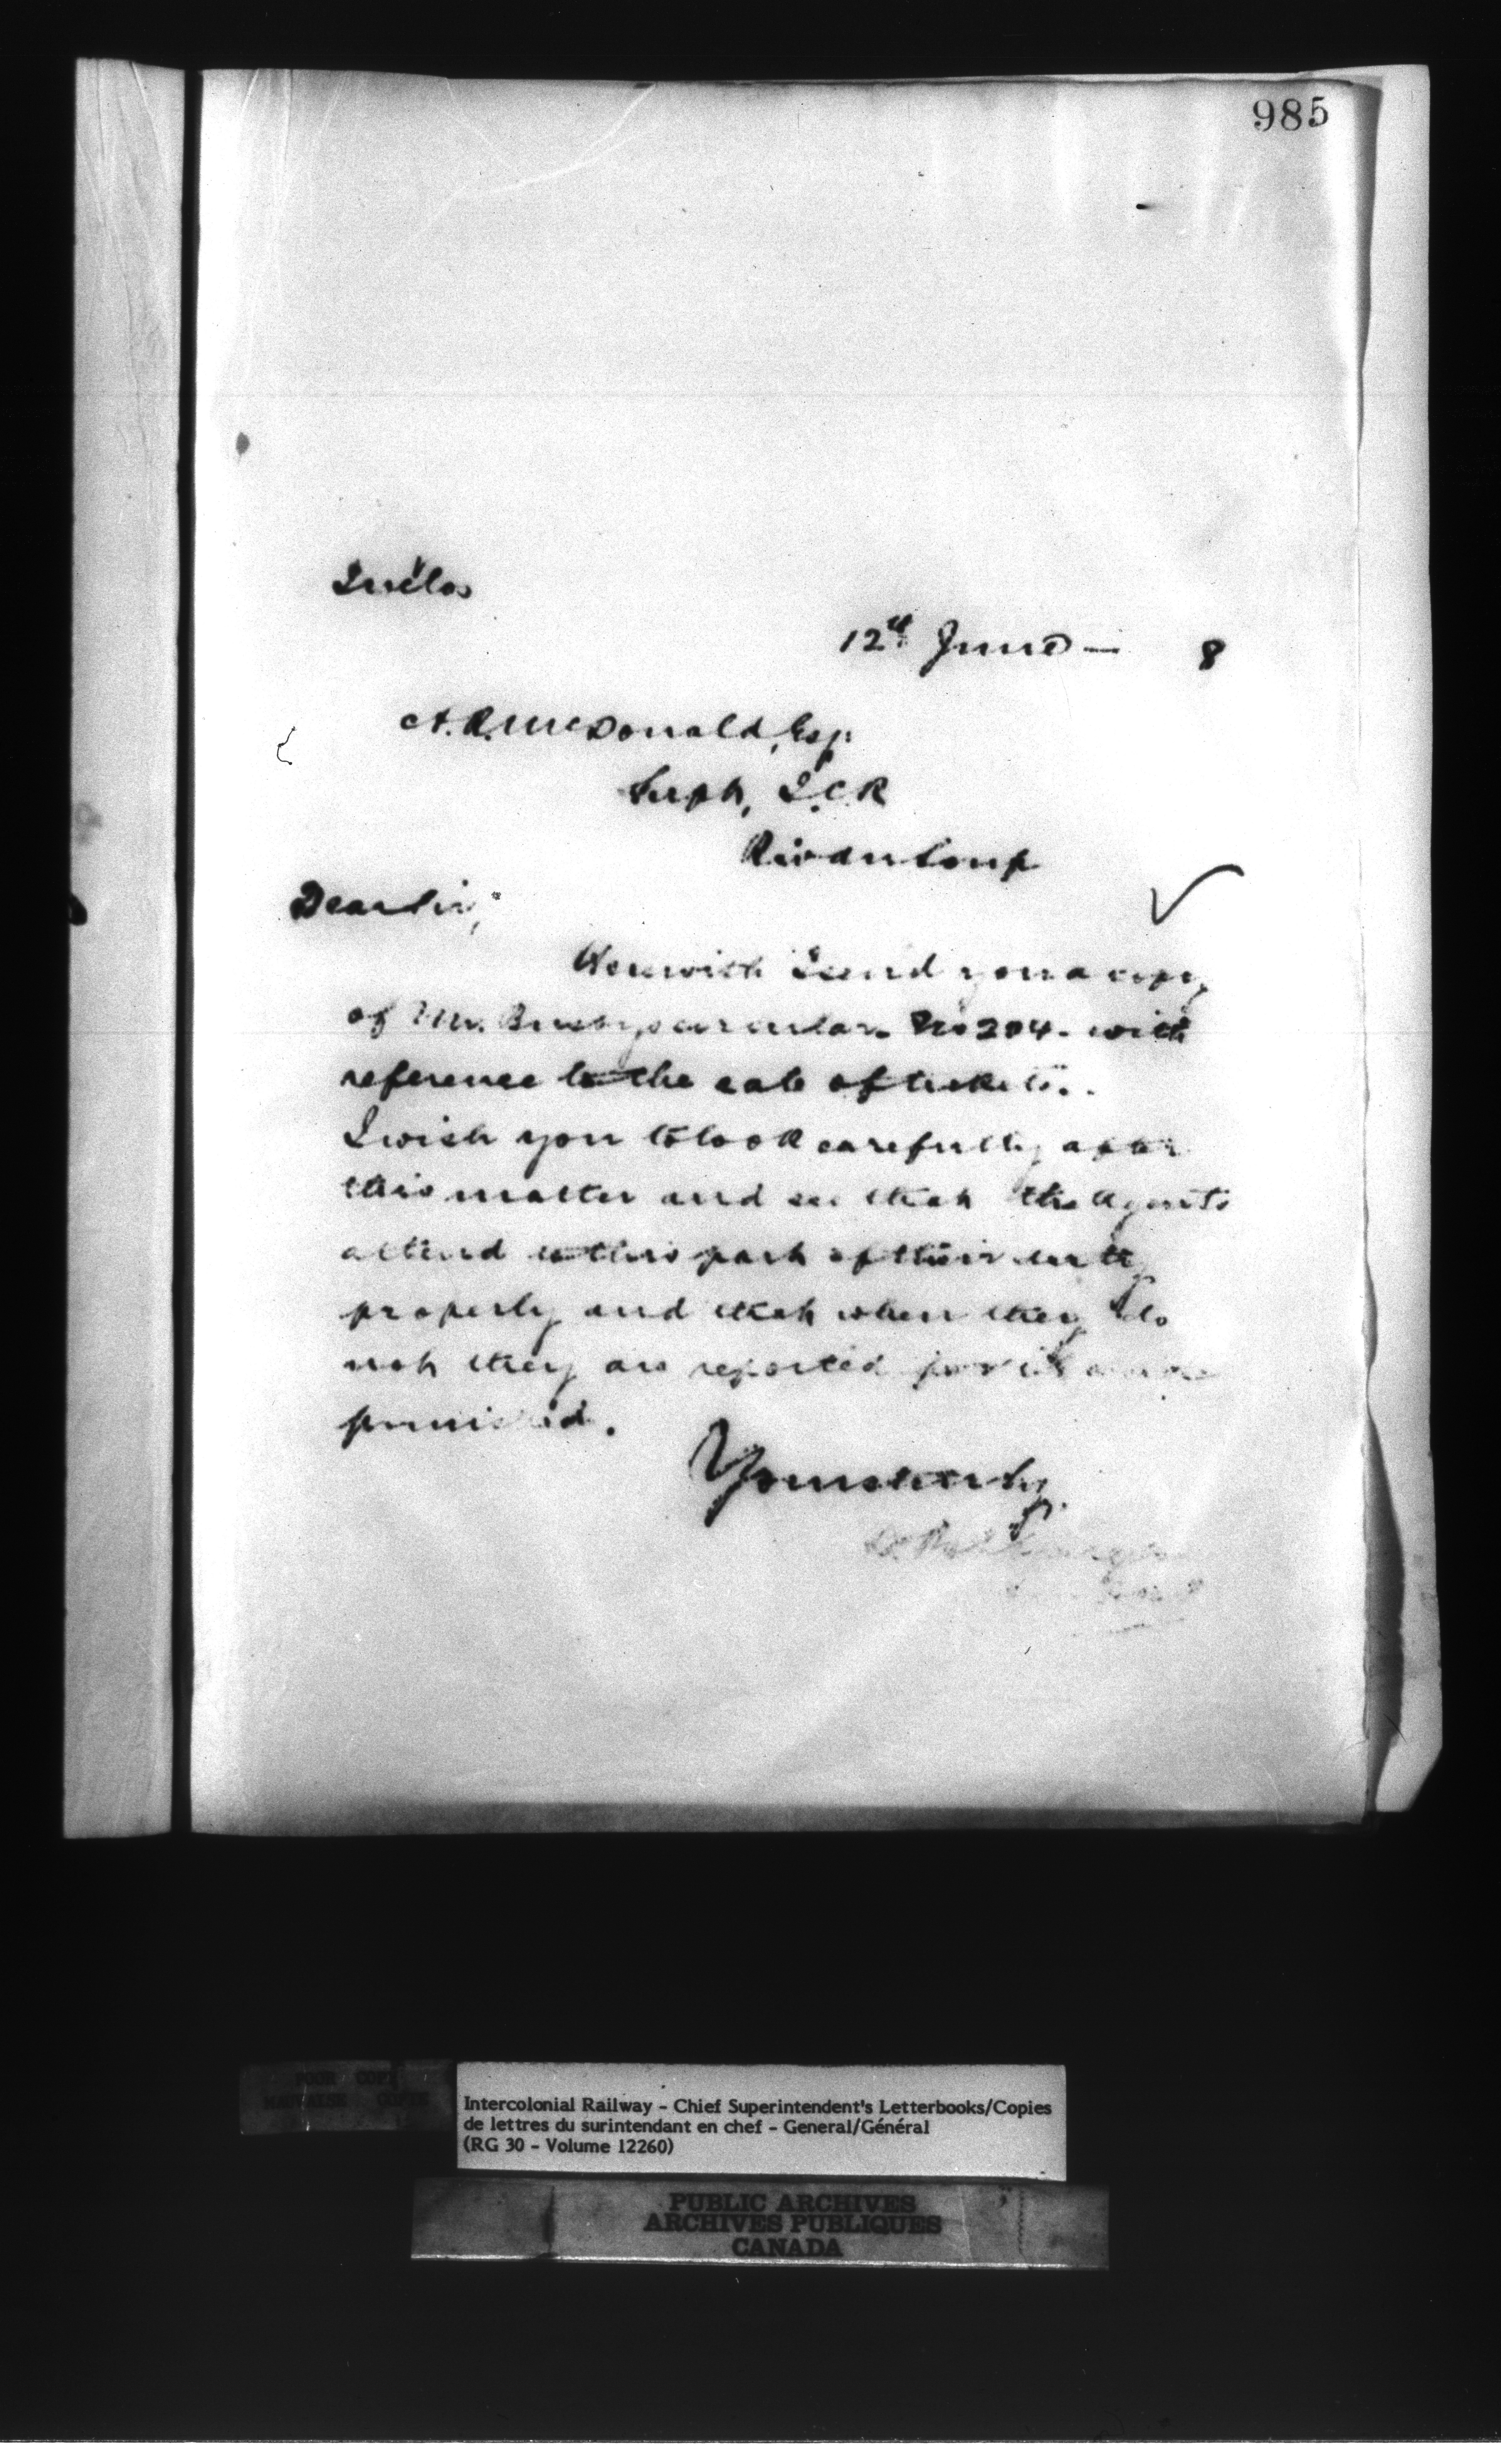 985
Inclos
12th June — 8
A. R. McDonald, Esq.
Supt, I.C.R
Riv du Loup
Dear Sir,
Herewith I send you a copy
of Mr. Busby's circular No 204. with
reference to the sale of tickets.
I wish you to look carefully after
this matter and see that the Agents
attend to this part of their duty
properly and that when they do
not they are reported for it and
punished.
Yours truly
POOR COPY
MAUVAISE COPIE
Intercolonial Railway - Chief Superintendent's Letterbooks/Copies
de lettres du surintendant en chef - General/Général
(RG 30 - Volume 12260)
PUBLIC ARCHIVES
ARCHIVES PUBLIQUES
CANADA